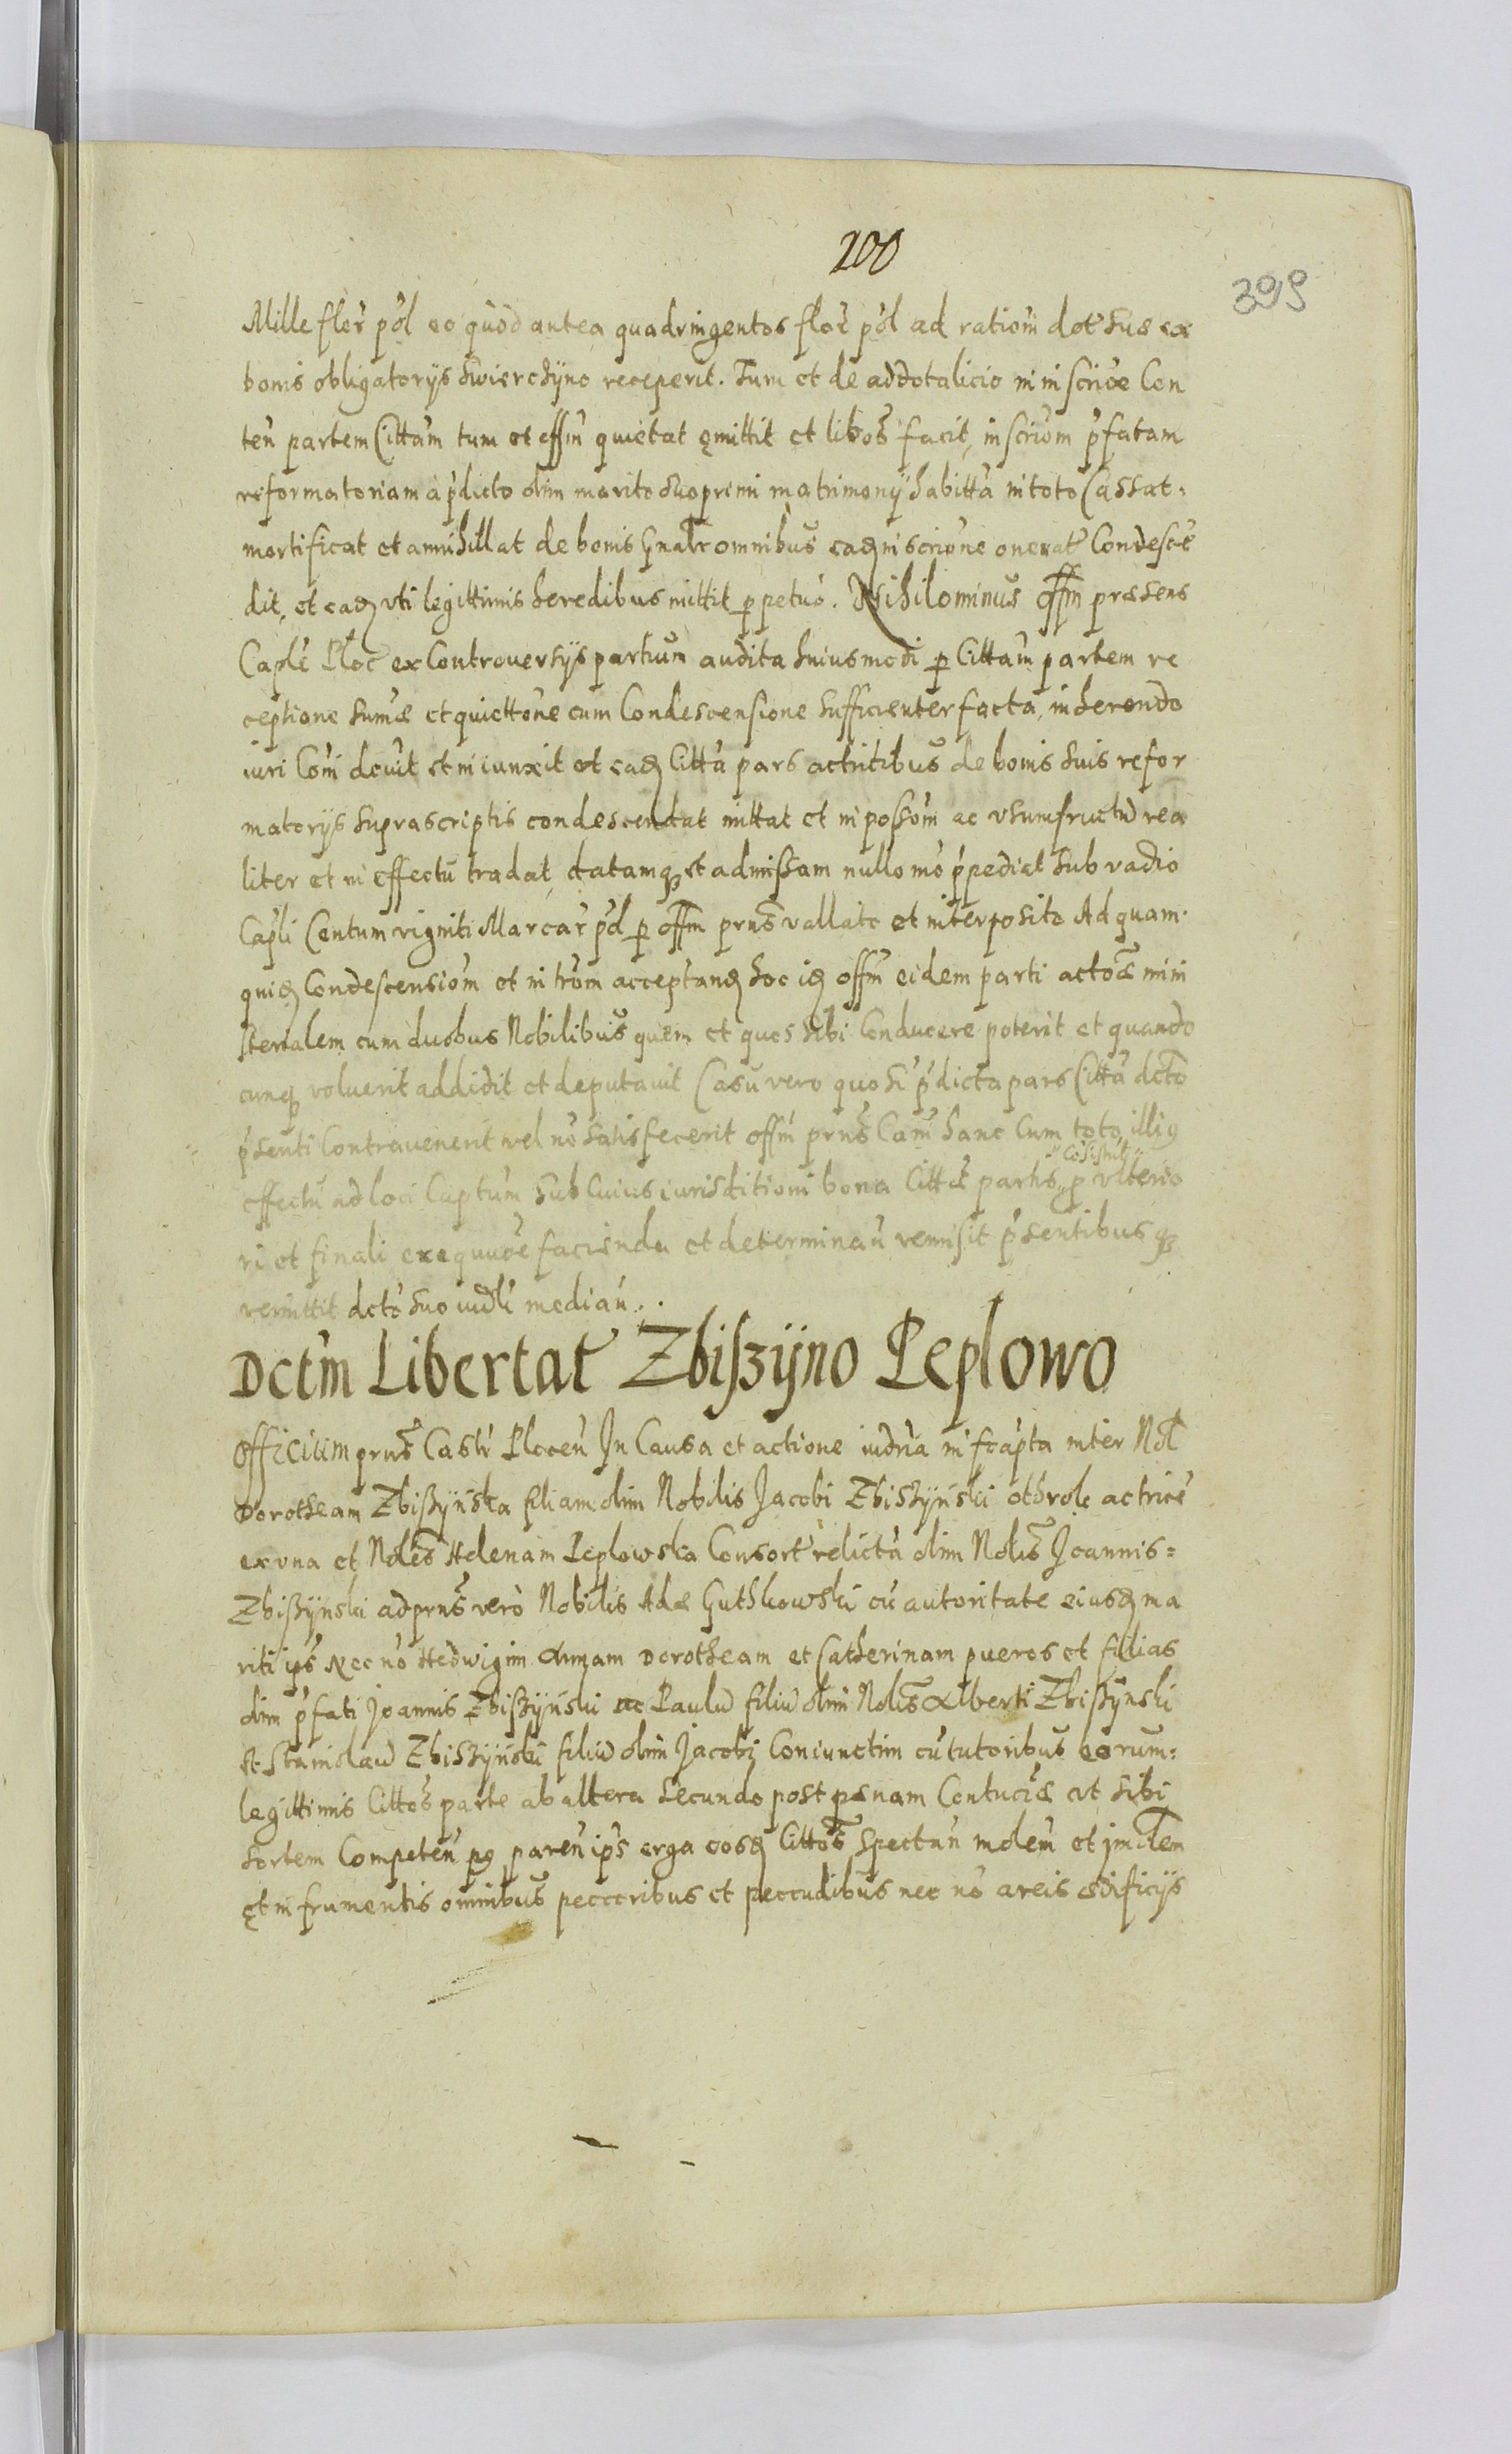 200
399
Mille flor pol eo quod antea quadringentos flor pol ad rationem dot suae ex
bonis obligatorijs Swierchÿno receperit. Tum et de addotalicio in inscrioe Con
ten partem Cittam tum et offm quietat omittit et libos facit, inscriom pfatam
reformatoriam a pdicto olim marito suo primi matrimonÿ habitta in toto Cassat.
mortificat et annihillat de bonis gnalr omnibus eadem inscrione onerat Condesce
dit, et eadem vti legittimis heredibus mittit perpetuo. Nihilominus offm praesens
Caple Ploc ex Controversÿs partium audita huiusmodi per Cittam partem re
ceptione sumae et quiettone cum Condescensione sufficienter facta, inherendo
iuri Coni devit et iniunxit ut eadem Citta pars actricibus de bonis suis refor
matorÿs suprascriptis condescendat mittat et in possom ac vsumfructu rea
liter et in effectu tradat, datamq et admissam nullo mo ppediat sub vadio
Capli Centum viginti Marcar pol per offm prns vallato et interposito Ad quam
quidem Condescensiom et introm acceptand hoc idem offm eidem parti actoae mini
sterialem cum duobus Nobilibus quem et quos sibi Conducere poterit et quando
cunq voluerit addidit et deputavit Casu vero quo si pdicta pars Citta dcto
psenti Contravenerit vel no satisfecerit offm prns Cam hanc Cum toto illiq
effectu ad loci Captum sub Cuius iurisditioni bona Cittae partis Cosistut p vlterio
ri et finali exequuoe facienda et determinan remisit psentibus q
remittit dcto suo iudli median..
Dctm Libertat Zbiszÿno Peplowo
Officium prns Castr Plocen In Causa et actione iudria infrapta inter Nol
Dorotheam Zbiszÿnska filiam olim Nobilis Jacobi Zbiszÿnski othrole actrice
ex vna et Nolēs Helenam Peplowska Consort relicta olim Nolis Joannis=
Zbiszÿnski ad prns verò Nobilis Adae Guthkowski cu autoritate eiusdem ma
riti ips Nec no Hedwigim Annam Dorotheam et Catherinam pueros et filias
olim pfati Joannis Zbiszÿnski ac Paulu filiu olim Nolis Alberti Zbiszÿnski
et Stanislau Zbiszÿnski filiu olim Jacobi Coniunctim cu tutoribus eorum=
legittimis Cittos parte ab altera Secundo post paenam Contuciae ut sibi
sortem Competen pq paren ips erga eosdem Cittos spectan molem et imolem
et in frumentis omnibus peccoribus et peccudibus nec no areis aedificÿs